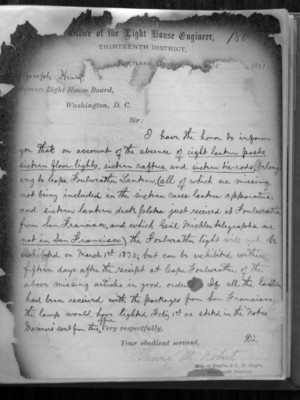 Office of the Light House Engineer,
THIRTEENTH DISTRICT,
PORTLAND,
Joseph
Light House Board,
Washington, D. C.
Sir:
I have the honor to inform
you that on account of the absence of eight lantern posts
sixteen floor lights, sixteen rafters and sixteen tie-rods (belong
ing to Cape Foulweather Lantern) (all of which are missing
not being included in the sixteen cases lantern apparatus
and sixteen lantern deck plates just received at Foulweather
from San Francisco, and which Genl Michler telegraphs are
not in San Francisco) the Foulweather light will not be
exhibited on March 1st 1873, but can be exhibited within
fifteen days after the receipt at Cape Foulweather of the
above missing articles in good order. If all the lantern
had been received with the packages from San Francisco,
the lamp would have lighted Feby 1st as stated in the Notice
Mariners sent from this Very respectfully,
Your obedient servant,